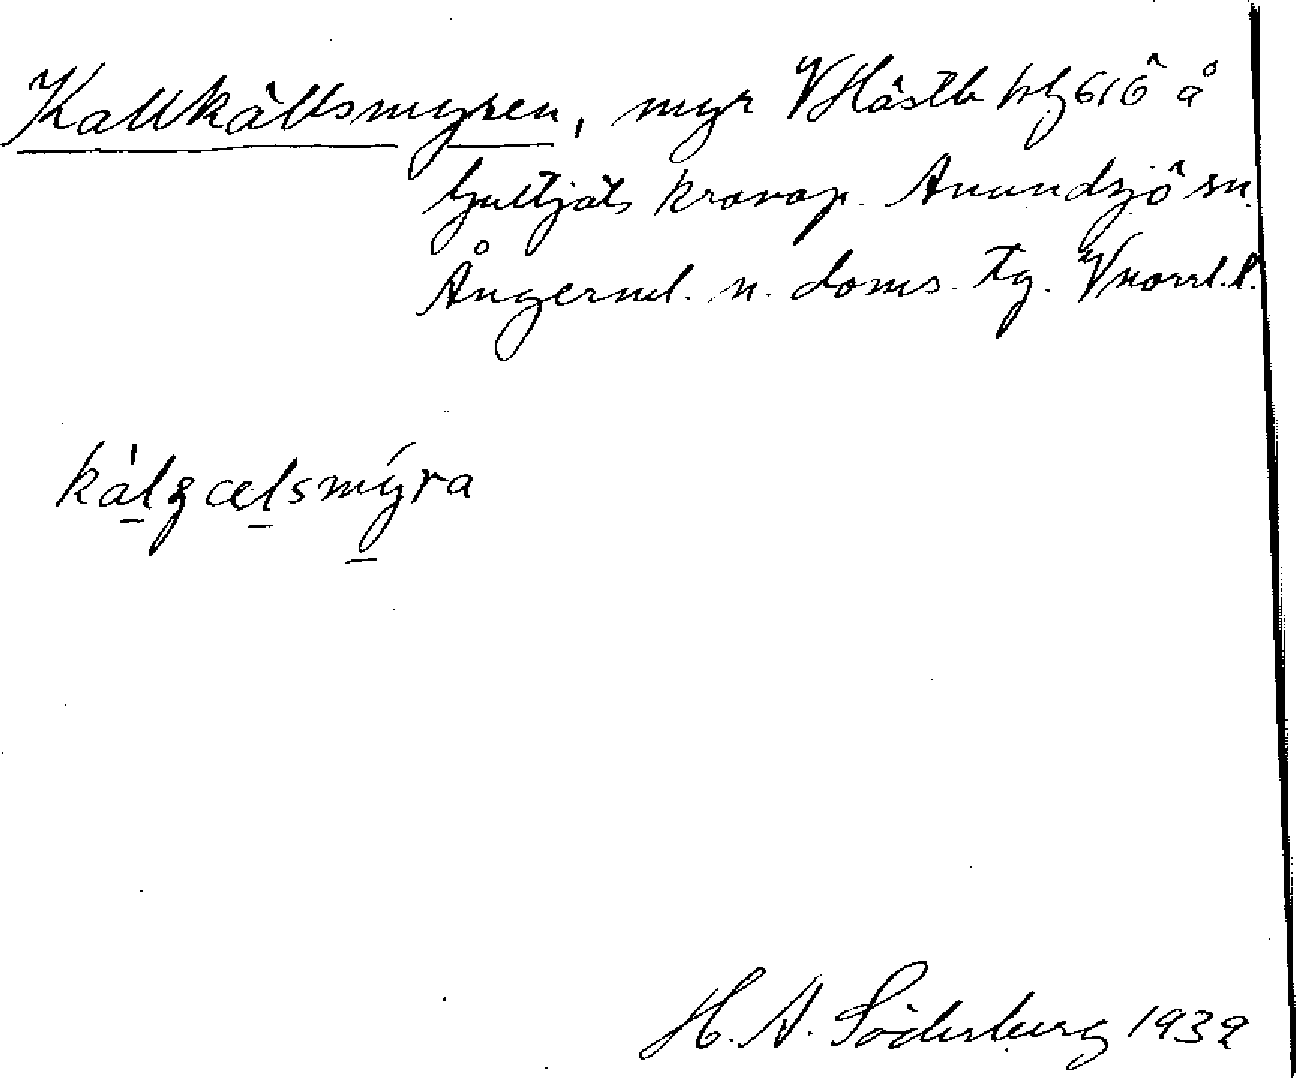 Kallkällsmyren, myr V Hästb hlz 616 å
Gulltjäls kronop. Anundsjö sn.
Ångerml. n. doms. tg. Vnorrl. l.
kálȝœlsmýra
H. A. Söderberg 1939